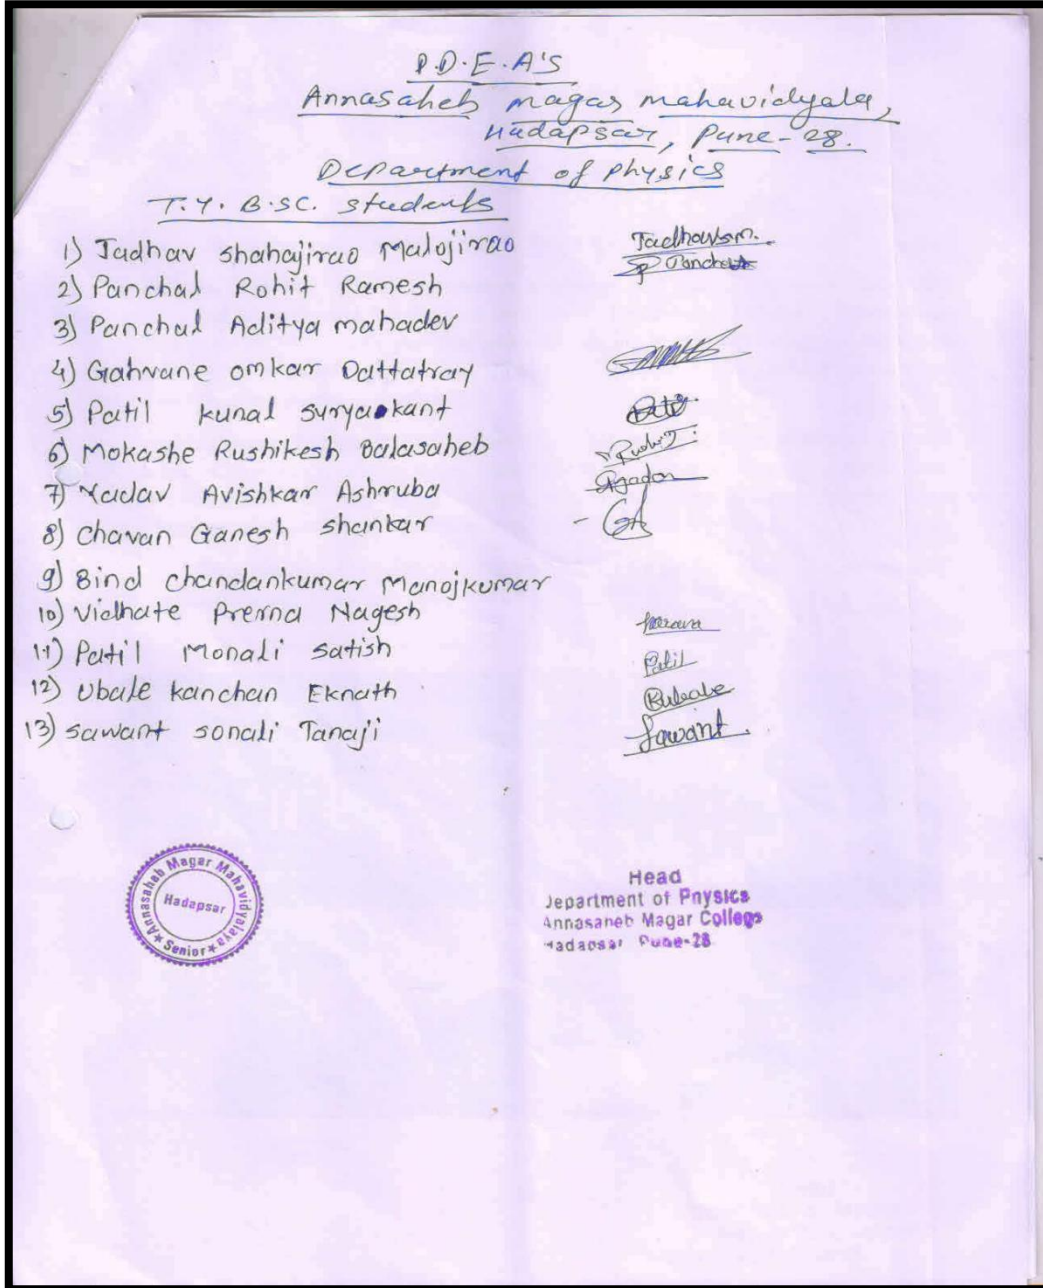 P.D.E.A'S
Annasaheb magar mahavidyala,
Hadapsar, Pune-28.
Department of Physics
T.Y. B.SC. students
1) Jadhav shahajirao Malojirao Jadhavsm.
2) Panchal Rohit Ramesh Panchal
3) Panchal Aditya mahadev
4) Gahvane omkar Dattatray
5) Patil kunal suryakant
6) Mokashe Rushikesh Balasaheb
7) Yadav Avishkar Ashruba
8) Chavan Ganesh shankar
9) Bind chandankumar Manojkumar
10) Vidhate Prerna Nagesh
11) Patil Monali satish Patil
12) Ubale kanchan Eknath
13) sawant sonali Tanaji Sawant.
Annasaheb Magar Mahavidyalaya
Hadapsar
Senior
Head
Department of Physics
Annasaheb Magar College
Hadapsar Pune-28